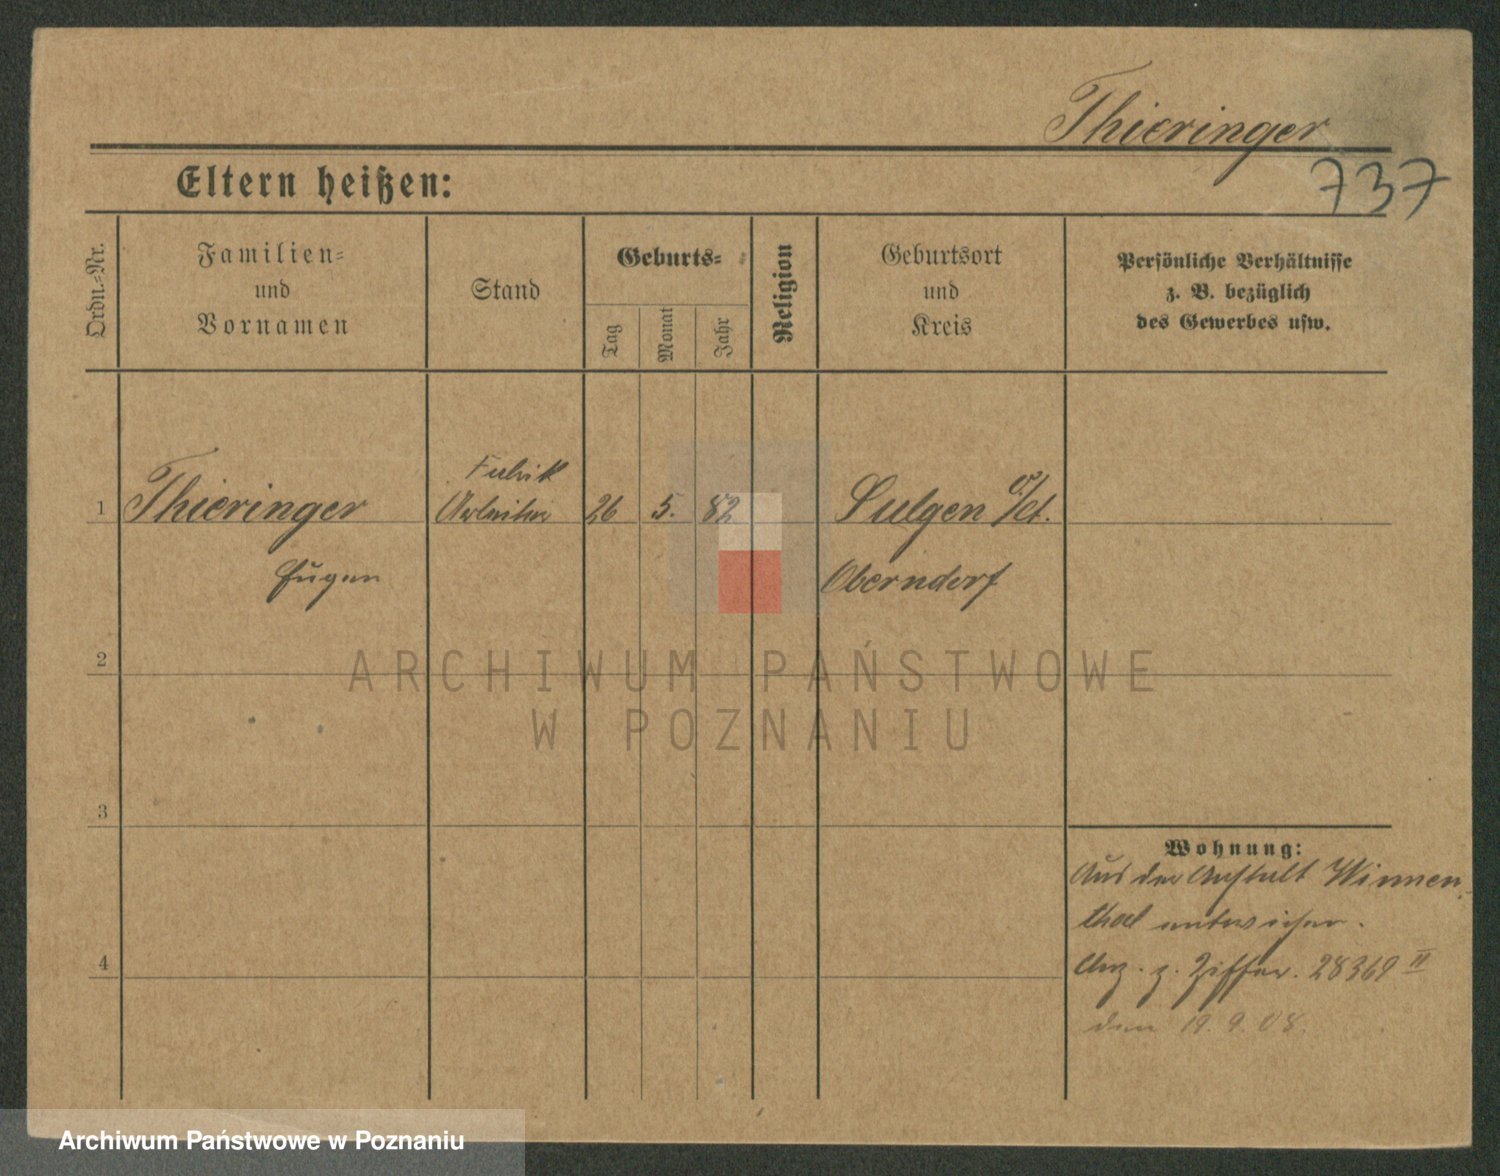 Thieringer
737
Eltern heißen:
Ordn.=Nr.
Familien=
und
Vornamen
Stand
Geburts=
Tag
Monat
Jahr
Religion
Geburtsort
und
Kreis
Persönliche Verhältnisse
z. B. bezüglich
des Gewerbes usw.
Fabrik
1 Thieringer Arbeiter 26 5. 82 Sulgen O/A.
Eugen Oberndorf
2
ARCHIWUM PAŃSTWOWE
W POZNANIU
3
Wohnung:
Aus der Anstalt Winnen-
thal entwichen.
4
Anz. z. Ziffer. 28369 II
den 19. 9. 08.
Archiwum Państwowe w Poznaniu